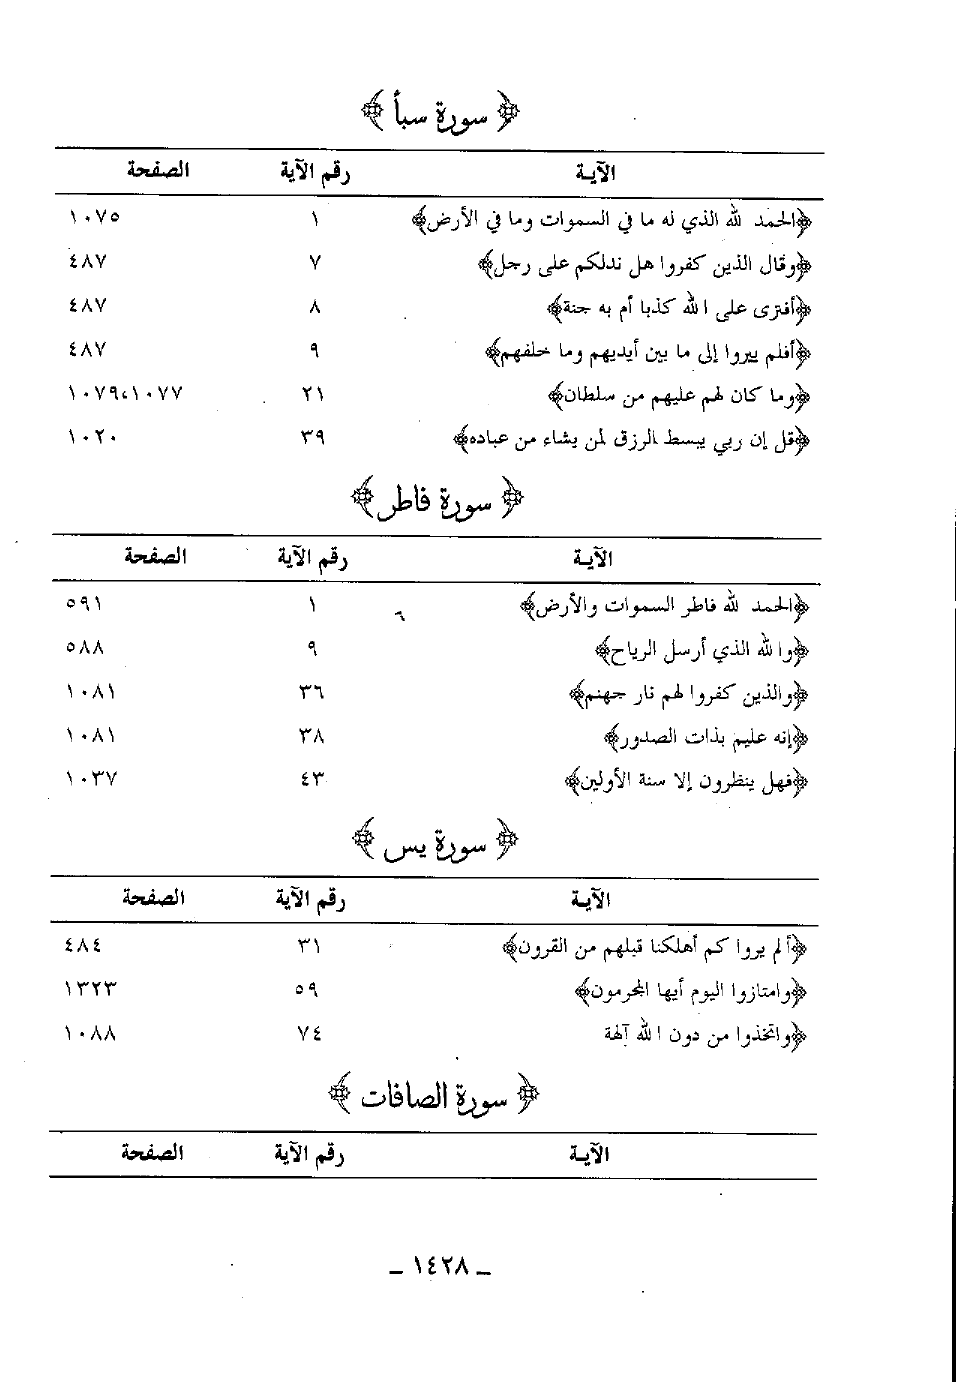 ﴿ سورة سبأ ﴾
الآيـة رقم الآية الصفحة
﴿الحمد لله الذي له ما في السموات وما في الأرض﴾ ١ ١٠٧٥
﴿وقال الذين كفروا هل ندلكم على رجل﴾ ٧ ٤٨٧
﴿أفترى على الله كذبا أم به جنة﴾ ٨ ٤٨٧
﴿أفلم يروا إلى ما بين أيديهم وما خلفهم﴾ ٩ ٤٨٧
﴿وما كان لهم عليهم من سلطان﴾ ٢١ ١٠٧٧،١٠٧٩
﴿قل إن ربي يبسط الرزق لمن يشاء من عباده﴾ ٣٩ ١٠٢٠
﴿ سورة فاطر ﴾
الآيـة رقم الآية الصفحة
﴿الحمد لله فاطر السموات والأرض﴾ ١ ٥٩١
﴿والله الذي أرسل الرياح﴾ ٩ ٥٨٨
﴿والذين كفروا لهم نار جهنم﴾ ٣٦ ١٠٨١
﴿إنه عليم بذات الصدور﴾ ٣٨ ١٠٨١
﴿فهل ينظرون إلا سنة الأولين﴾ ٤٣ ١٠٣٧
﴿ سورة يس ﴾
الآيـة رقم الآية الصفحة
﴿ألم يروا كم أهلكنا قبلهم من القرون﴾ ٣١ ٤٨٤
﴿وامتازوا اليوم أيها المجرمون﴾ ٥٩ ١٣٢٣
﴿واتخذوا من دون الله آلهة ٧٤ ١٠٨٨
﴿ سورة الصافات ﴾
الآيـة رقم الآية الصفحة
ـ ١٤٢٨ ـ